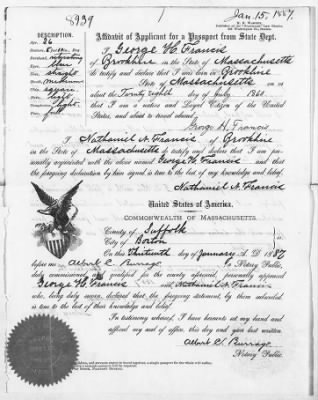 8939
Jan. 15, 1887.
DESCRIPTION.
Affidavit of Applicant for a Passport from State Dept.
Age, 26
I George H. Francis
of Brookline in the State of Massachusetts
do testify and declare that I was born in Brookline
State of Massachusetts on
about the Twenty eighth day of July 1860
that I am a native and Loyal Citizen of the United
States, and about to travel abroad.
George H. Francis
I Nathaniel A. Francis of Brookline
in the State of Massachusetts do testify and declare that I am per-
sonally acquainted with the above named George H. Francis and that
the foregoing declaration by him signed is true to the best of my knowledge and belief.
Nathaniel A. Francis
United States of America.
COMMONWEALTH OF MASSACHUSETTS.
County of Suffolk
City of Boston
On this Thirteenth day of January A. D. 1887
before me Albert C. Burrage a Notary Public,
duly commissioned and qualified for the county aforesaid, personally appeared
George H. Francis and Nathaniel A. Francis
who, being duly sworn, declared that the foregoing statement, by them subscribed
is true to the best of their knowledge and belief.
In testimony whereof, I have hereunto set my hand and
affixed my seal of office, this day and year last written.
Albert C. Burrage
Notary Public.